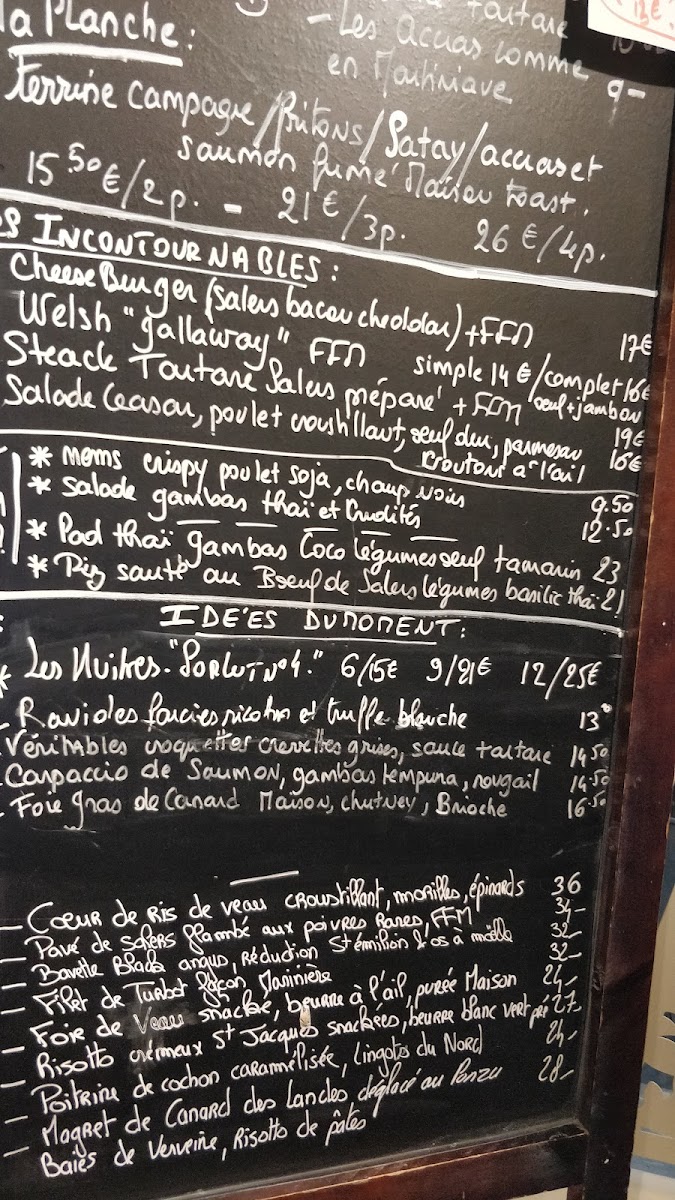 tartare
- Les accras comme
en Martinique 9-
13€
la Planche:
Terrine campagne/Pritons/Satay/accras et
saumon fumé Maison toast.
15.50€/2p. - 21€/3p. 26€/4p.
INCONTOURNABLES:
Cheese Burger (Salers bacon cheddar) + FFM 17€
Welsh "gallaway" FFM simple 14€/complet 16€
oeuf + jambon
Steack Tartare Salers préparé + FFM 19€
Salade Ceasar, poulet croustillant, oeuf dur, parmesan 16€
croutons a l'ail
* nems crispy poulet soja, champ noirs 9.50
* Salade gambas thaï et Crudités 12.50
* Pad thaï gambas Coco légumes oeuf tamarin 23
* Riz sauté au Boeuf de Salers légumes basilic thaï 21
IDEÉS DU MOMENT:
* Les Huitres "Sorlut n°4." 6/15€ 9/21€ 12/25€
- Ravioles farcies ricotta et truffe blanche 13
- Véritables croquettes crevettes grises, sauce tartare 14.50
- Carpaccio de Saumon, gambas tempura, rougail 14.50
- Foie gras de Canard Maison, chutney, Brioche 16.50
- Coeur de Ris de veau croustillant, morilles, épinards 36
- Pavé de Salers flambé aux poivres Rares, FFM 34-
- Bavette Black angus, réduction St émilion & os à moëlle 32-
- Filet de Turbot façon Marinière 32-
- Foie de Veau snacké, beurre à l'ail, purée Maison 24-
- Risotto crémeux St Jacques snackées, beurre blanc vert pré 27-
- Poitrine de cochon caramélisée, Lingots du Nord 24-
- Magret de Canard des Landes déglacé au Ponzu 28-
Baies de Verveine, Risotto de pâtes